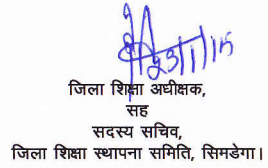 23/11/15
जिला शिक्षा अधीक्षक,
सह
सदस्य सचिव,
जिला शिक्षा स्थापना समिति, सिमडेगा।